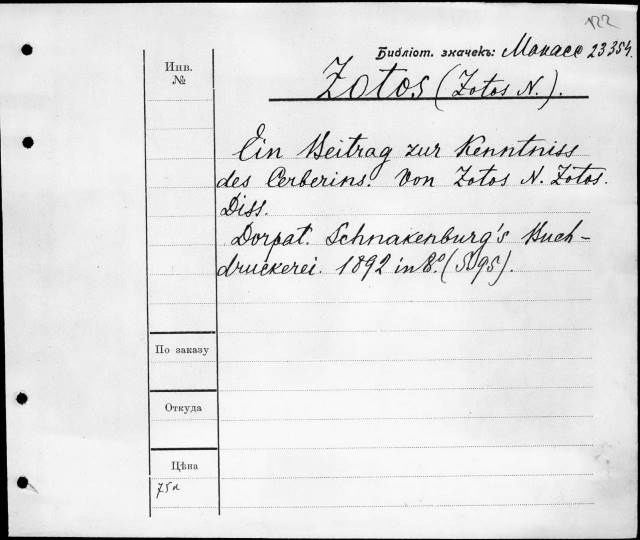 122
Библіот. значекъ: Монасс 23354.
Инв.
№
Zotos (Zotos N.).
Ein Beitrag zur Kenntniss
des Cerberins. Von Zotos N. Zotos.
Diss.
Dorpat. Schnakenburg's Buch-
druckerei. 1892 in 8.º (5095).
По заказу
Откуда
Цѣна
75к